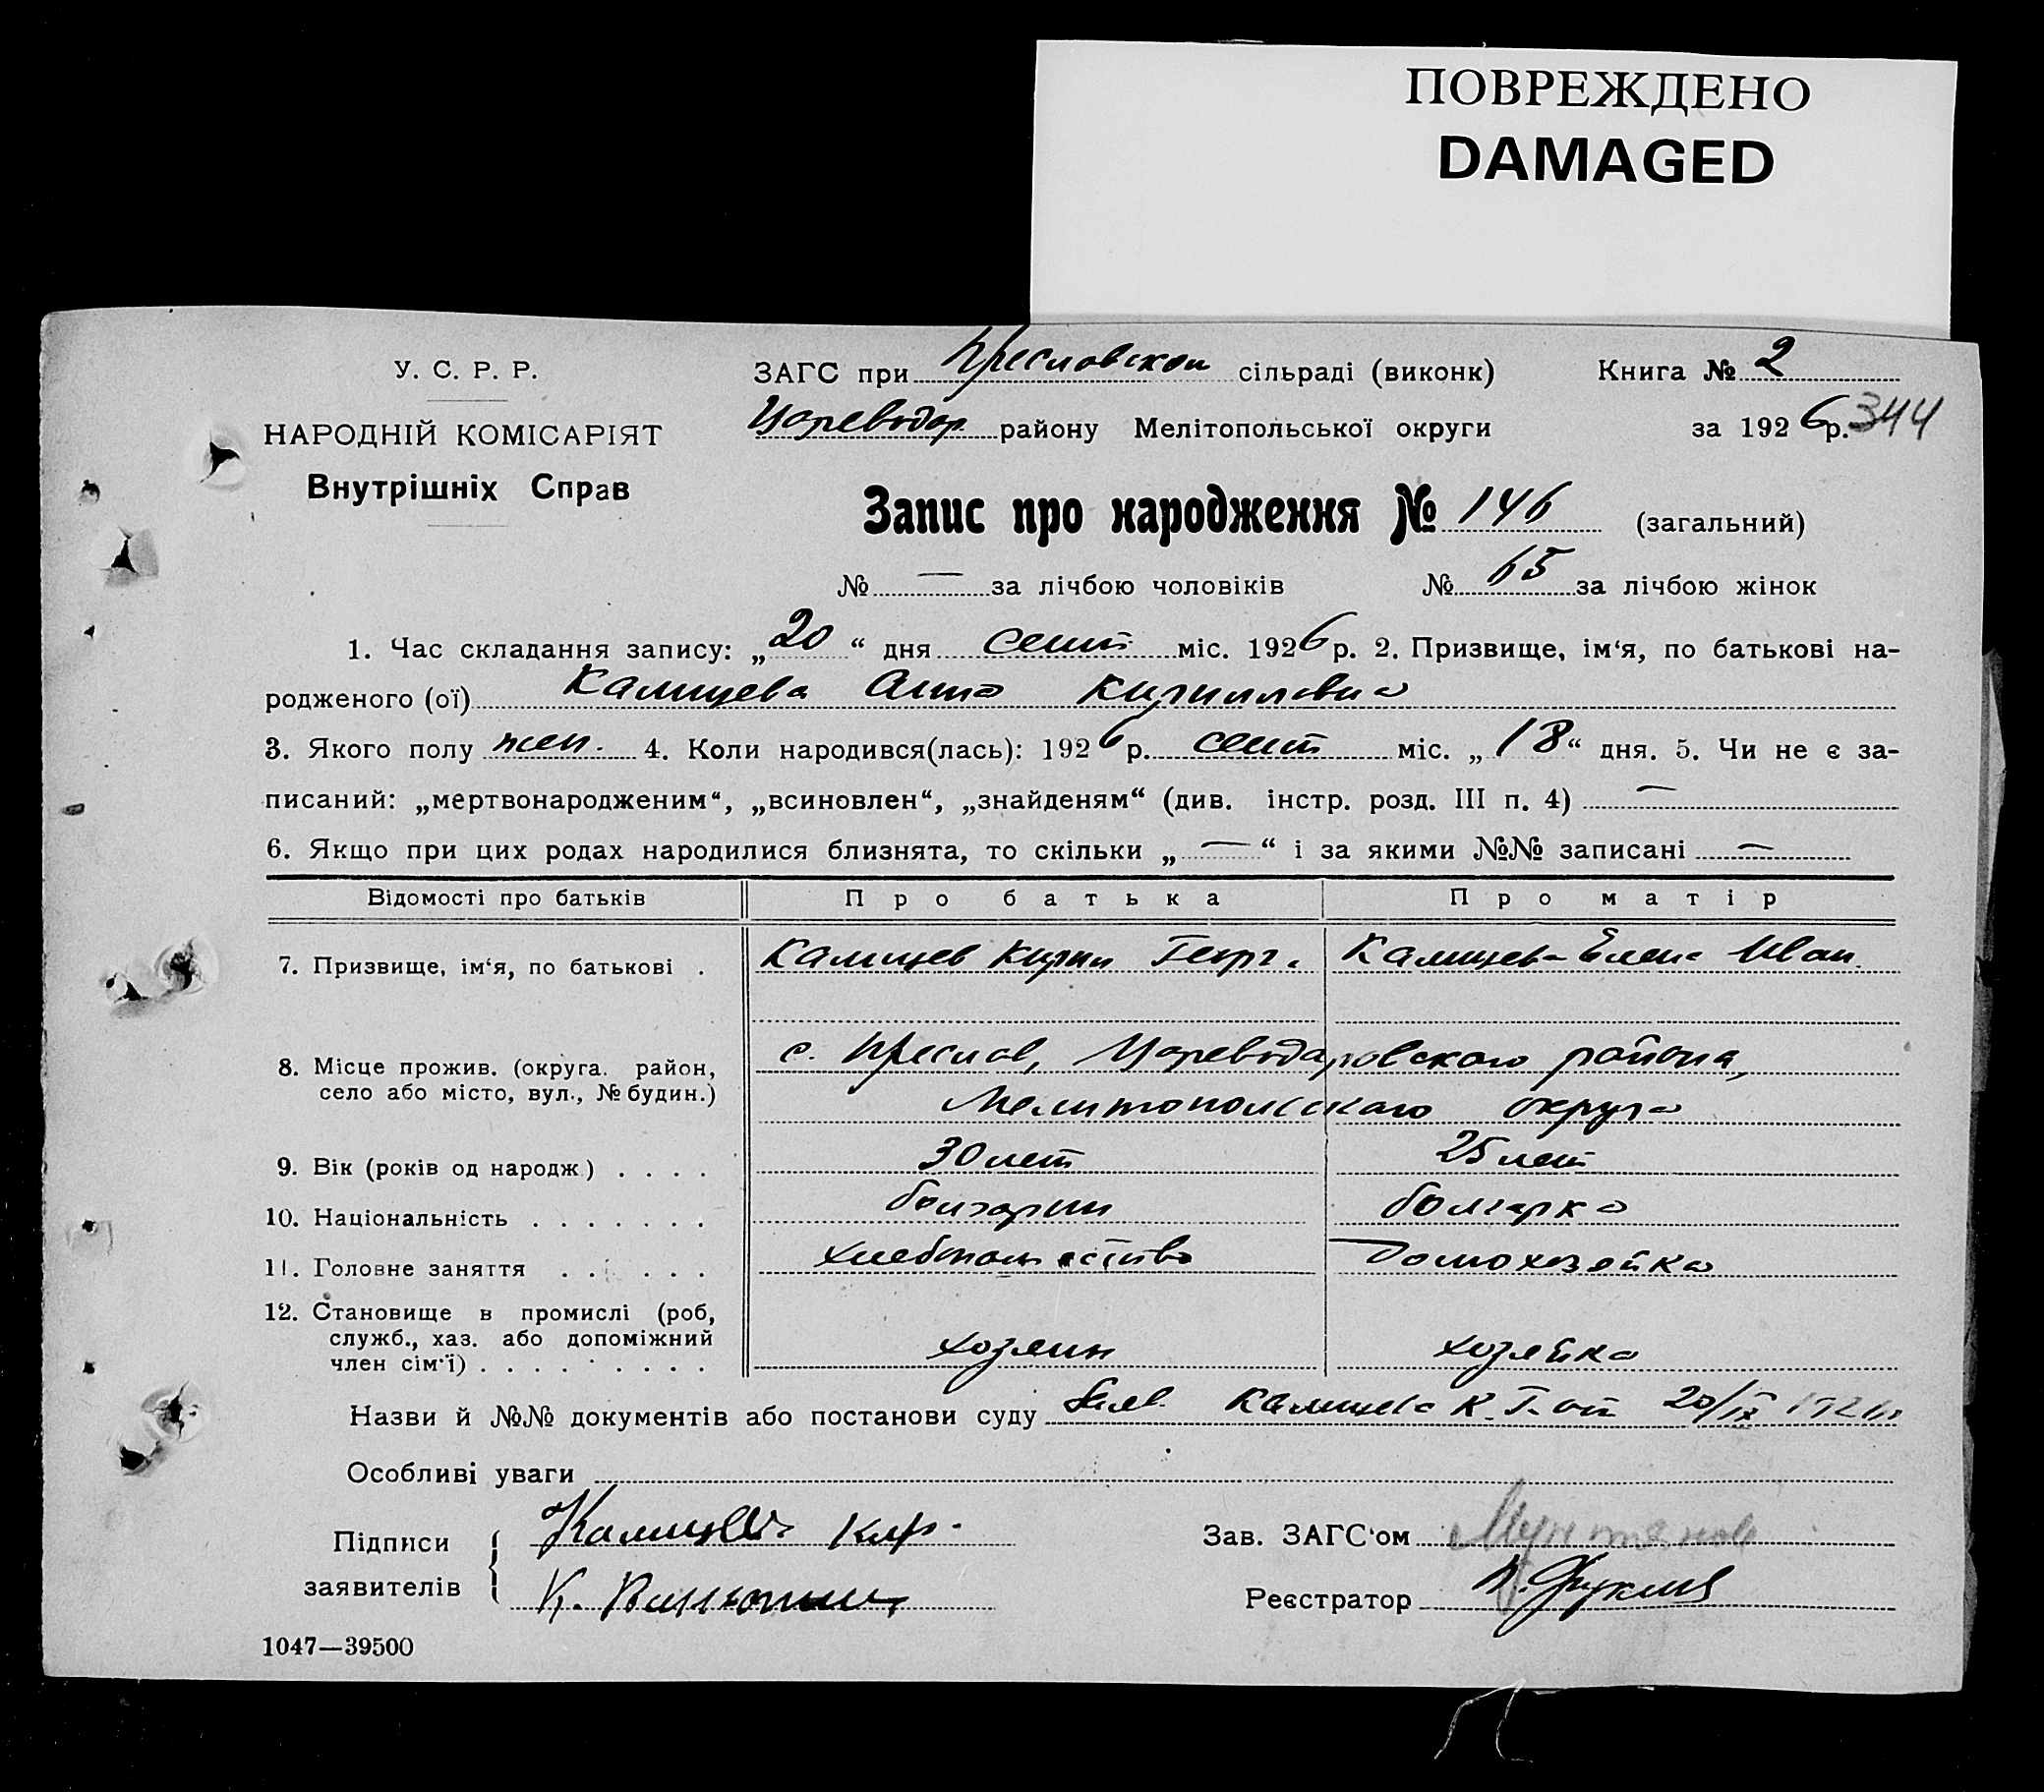 ПОВРЕЖДЕНО
DAMAGED
У. С. Р. Р.
НАРОДНІЙ КОМІСАРІЯТ
Внутрішніх Справ
ЗАГС при Преславском сільраді (виконк) Книга № 2
Цареводар. району Мелітопольської округи за 1926 р. 344
Запис про народження № 146 (загальний)
№ — за лічбою чоловіків № 65 за лічбою жінок
1. Час складання запису: „20“ дня сент. міс. 1926 р. 2. Призвище, ім‘я, по батькові на-
родженого (ої) Калицева Анна Кирилловна
3. Якого полу жен. 4. Коли народився(лась): 1926 р. сент міс. „18“ дня. 5. Чи не є за-
писаний: „мертвонародженим“, „всиновлен“, „знайденям“ (див. інстр. розд. III п. 4) —
6. Якщо при цих родах народилися близнята, то скільки „—“ і за якими №№ записані —
Відомості про батьків Про батька Про матір
7. Призвище, ім‘я, по батькові . Калицев Кирил Георг. Калицева Елена Иван.
8. Місце прожив. (округа. район, с. Преслав, Цареводаровского района,
село або місто, вул., № будин.) Мелитопольского округа
9. Вік (років од народж.) . . . . 30 лет 25 лет
10. Національність . . . . . . . болгарин болгарка
11. Головне заняття . . . . . . хлебопашество Домохозяйка
12. Становище в промислі (роб,
служб., хаз. або допоміжний
член сім‘ї) . . . . . . . . . хозяин хозяйка
Назви й №№ документів або постанови суду Заяв. Калицева К. Г. от 20/IX 1926
Особливі уваги
Підписи Калицев Кир. Зав. ЗАГС‘ом
заявителів К. Реєстратор
1047—39500